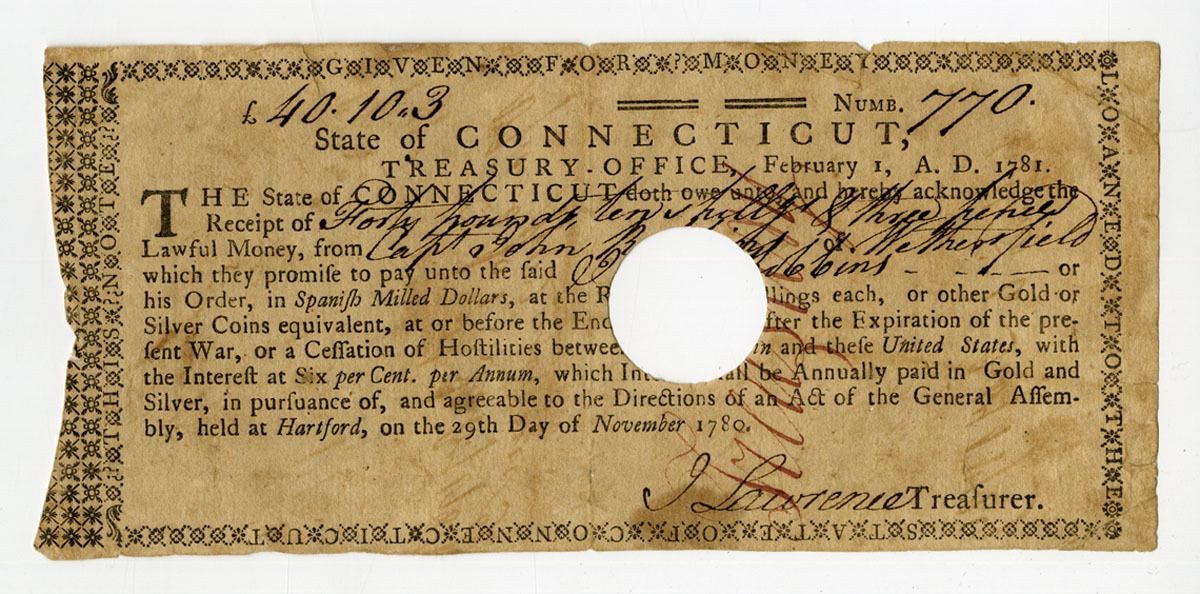 GIVEN FOR MONEY
LOANED TO THE
STATE OF CONNECTICUT
THIS NOTE
£ 40.10.3 NUMB. 770.
State of CONNECTICUT,
TREASURY-OFFICE, February 1, A. D. 1781.
THE State of CONNECTICUT doth owe unto, and hereby acknowledge the
Receipt of Forty pounds, ten shills & three pence
Lawful Money, from Capt John of Wethersfield
which they promiſe to pay unto the said or
his Order, in Spaniſh Milled Dollars, at the llings each, or other Gold or
Silver Coins equivalent, at or before the End fter the Expiration of the pre-
ſent War, or a Ceſſation of Hoſtilities between and theſe United States, with
the Intereſt at Six per Cent. per Annum, which Int all be Annually paid in Gold and
Silver, in purſuance of, and agreeable to the Directions of an Act of the General Aſſem-
bly, held at Hartford, on the 29th Day of November 1780.
J Lawrence Treaſurer.